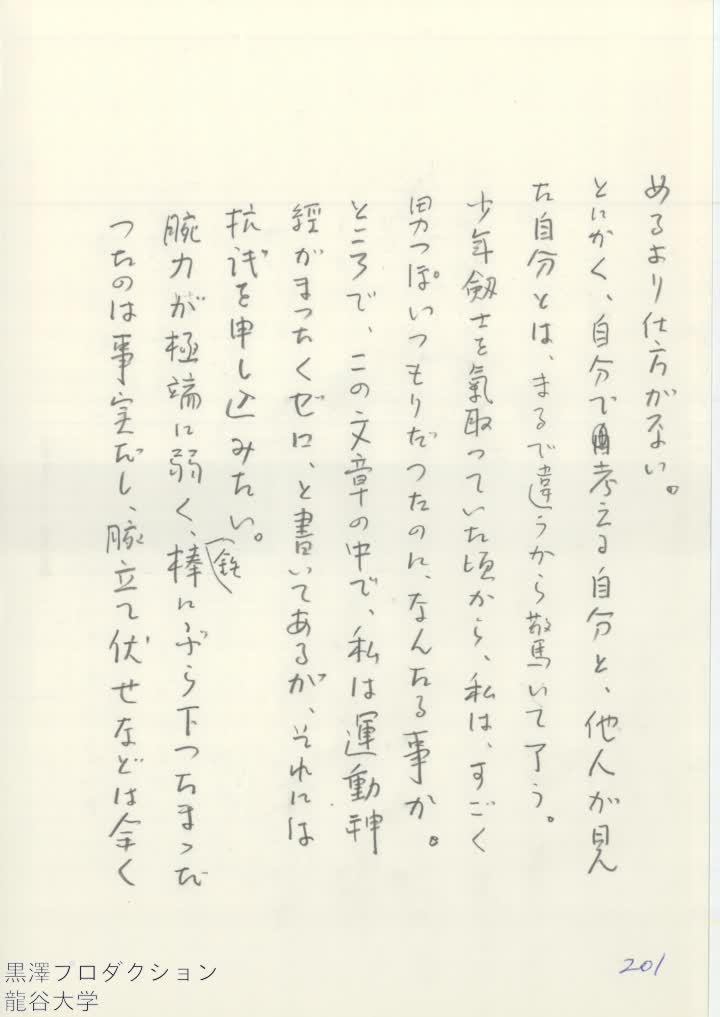 めるより仕方がない。
とにかく、自分で考える自分と、他人が見
た自分とは、まるで違うから驚いて了う。
少年劔士を氣取っていた頃から、私は、すごく
男っぽいつもりだつたのに、なんたる事か。
ところで、この文章の中で、私は運動神
經がまったくゼロ、と書いてあるが、それには
抗議を申し込みたい。
腕力が極端に弱く、棒にぶら下つちまつだ
つたのは事実だし、腕立て伏せなどは全く
201
黒澤プロダクション
龍谷大学